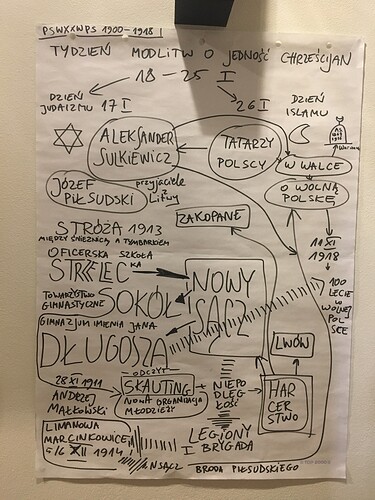 PSWXXWPS 1900-1918
TYDZIEŃ MODLITW O JEDNOŚĆ CHRZEŚCIJAN
18-25 I
DZIEŃ
JUDAIZMU 17 I
26 I
DZIEŃ
ISLAMU
ALEKSANDER
SULKIEWICZ
TATARZY
POLSCY
W WALCE
O WOLNĄ
POLSKĘ
JÓZEF
PIŁSUDSKI
przyjaciele
z Litwy
ZAKOPANE
STRÓŻA 1913
MIĘDZY ŚNIEŻNICĄ A TYMBARKIEM
OFICERSKA SZKOŁA
STRZELECKA
11 XI
1918
100
LECIE
W
WOLNEJ
POL
SCE
TOWARZYSTWO
GIMNASTYCZNE
SOKÓŁ
NOWY
SĄCZ
GIMNAZJUM IMIENIA JANA
DŁUGOSZA
LWÓW
28 XI 1911
ANDRZEJ
MAŁKOWSKI
ODCZYT
SKAUTING
NOWA ORGANIZACJA
MŁODZIEŻY
+ NIEPO
DLEG
ŁOŚĆ
HAR
CER
STWO
LIMANOWA
MARCINKOWICE
5/6 XII 1914
LEGIONY
I BRYGADA
N SĄCZ BRODA PIŁSUDSKIEGO